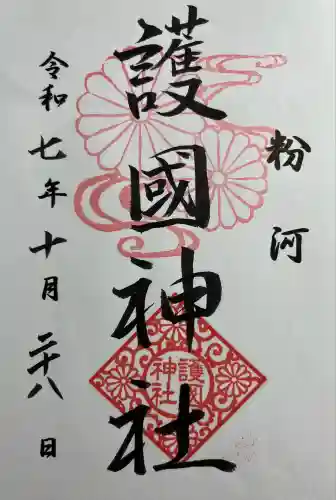 粉河
護國神社
令和七年十月二十八日
護国
神社